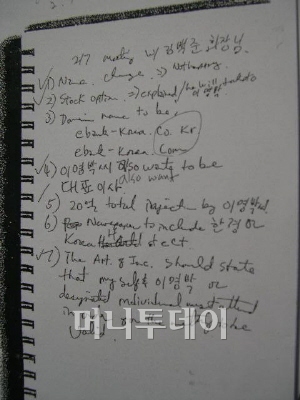 2/7 meeting w/ 김백준 회장님
√1) Name change
√2) Stock option
3) Domain name to be
ebank-Korea.co.kr
ebank-Korea.com
√4) 이명박씨 also wants to be
also want
대표이사
5) 20억 total injection by 이명박
6) Newspaper to include 한경 or
Korea
√7) The Art. of Inc. should state
that my self & 이명박 or
designated individual must attend
in order for the
valid
머니투데이